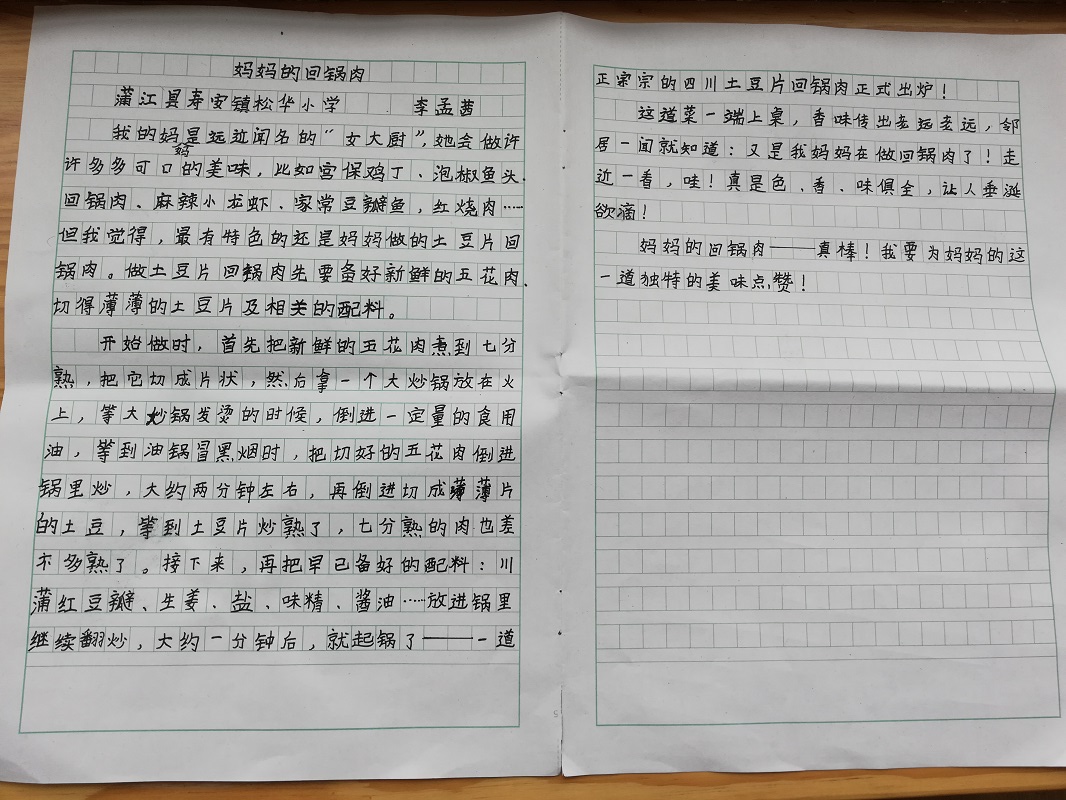 妈妈的回锅肉
蒲江县寿安镇松华小学 李孟茜
我的妈妈是远近闻名的“女大厨”，她会做许
许多多可口的美味，比如宫保鸡丁、泡椒鱼头、
回锅肉、麻辣小龙虾、家常豆瓣鱼，红烧肉……
但我觉得，最有特色的还是妈妈做的土豆片回
锅肉。做土豆片回锅肉先要备好新鲜的五花肉、
切得薄薄的土豆片及相关的配料。
开始做时，首先把新鲜的五花肉煮到七分
熟，把它切成片状，然后拿一个大炒锅放在火
上，等大炒锅发烫的时候，倒进一定量的食用
油，等到油锅冒黑烟时，把切好的五花肉倒进
锅里炒，大约两分钟左右，再倒进切成薄薄片
的土豆，等到土豆片炒熟了，七分熟的肉也差
不多熟了。接下来，再把早已备好的配料：川
蒲红豆瓣、生姜、盐、味精、酱油……放进锅里
继续翻炒，大约一分钟后，就起锅了——一道
正宗宗的四川土豆片回锅肉正式出炉！
这道菜一端上桌，香味传出老远老远，邻
居一闻就知道：又是我妈妈在做回锅肉了！走
近一看，哇！真是色、香、味俱全，让人垂涎
欲滴！
妈妈的回锅肉——真棒！我要为妈妈的这
一道独特的美味点赞！